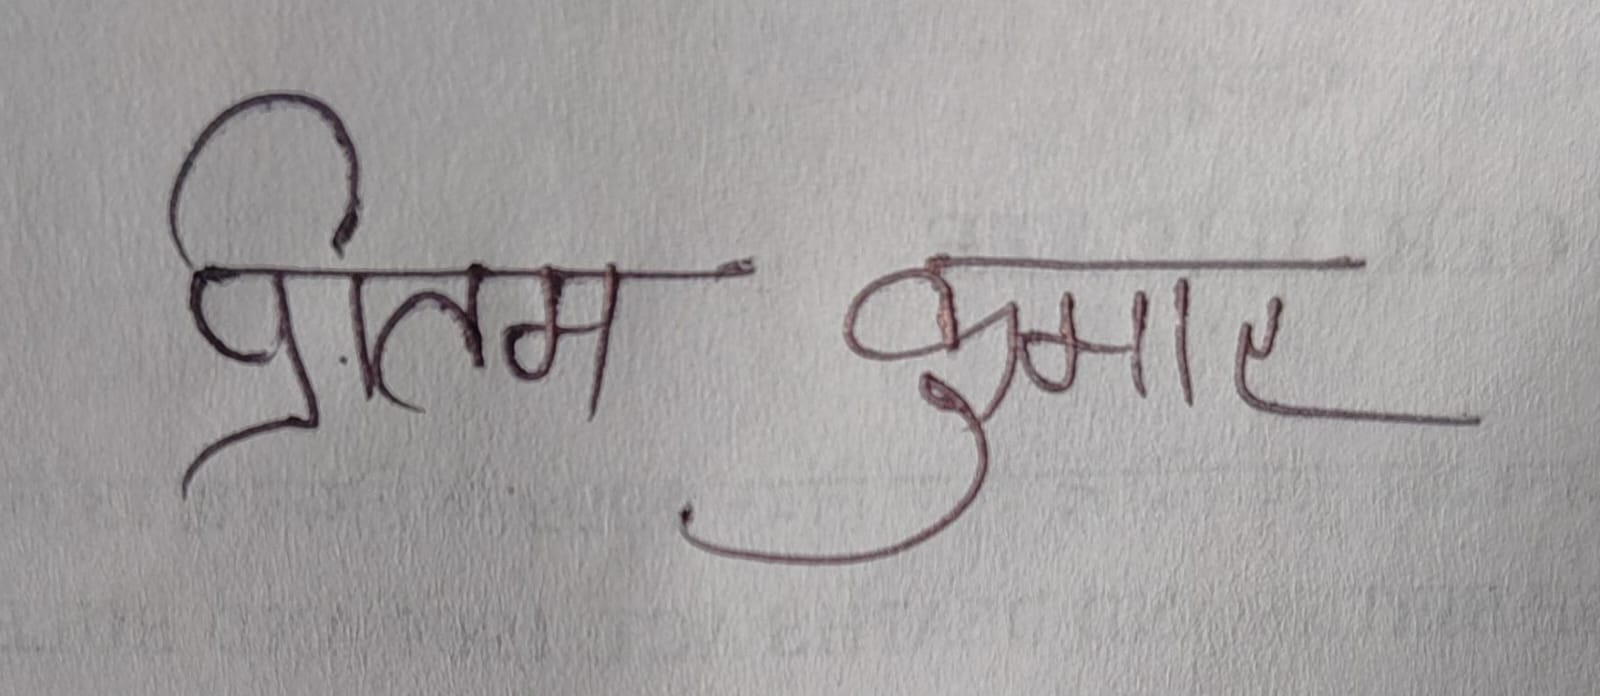 प्रीतम कुमार